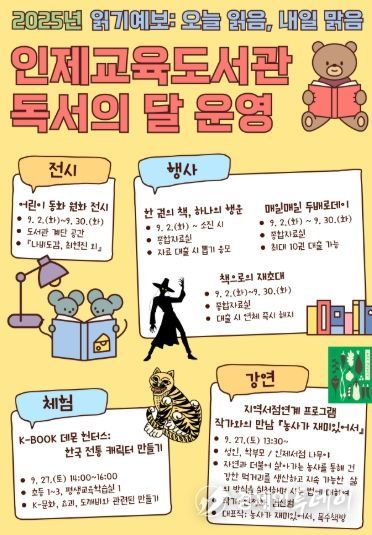 2025년 읽기예보: 오늘 읽음, 내일 맑음
인제교육도서관
독서의 달 운영
전시
어린이 동화 원화 전시
• 9. 2.(화)~9. 30.(화)
• 도서관 계단 공간
• 『나비도감, 최현진 외』
행사
한 권의 책, 하나의 행운
• 9. 2.(화) ~ 소진 시
• 종합자료실
• 자료 대출 시 뽑기 응모
매일매일 두배로데이
• 9. 2.(화) ~ 9. 30.(화)
• 종합자료실
• 최대 10권 대출 가능
책으로의 재초대
• 9. 2.(화)~9. 30.(화)
• 종합자료실
• 대출 시 연체 즉시 해지
체험
K-BOOK 데몬 헌터스:
한국 전통 캐릭터 만들기
• 9. 27.(토) 14:00~16:00
• 초등 1~3, 평생교육학습실 1
• K-문화, 설화, 도깨비와 관련된 만들기
강연
지역서점연계 프로그램
작가와의 만남 『농사가 재미있어서』
• 9. 27.(토) 13:30~
• 성인, 학부모 / 인제서점 나무야
• 자연과 더불어 살아가는 농사를 통해 건강한 먹거리를 생산하고 지속 가능한 삶의 방식을 실천하며 사는 법에 대하여
• 대표작: 농사가 재미있어서, 옥수책방